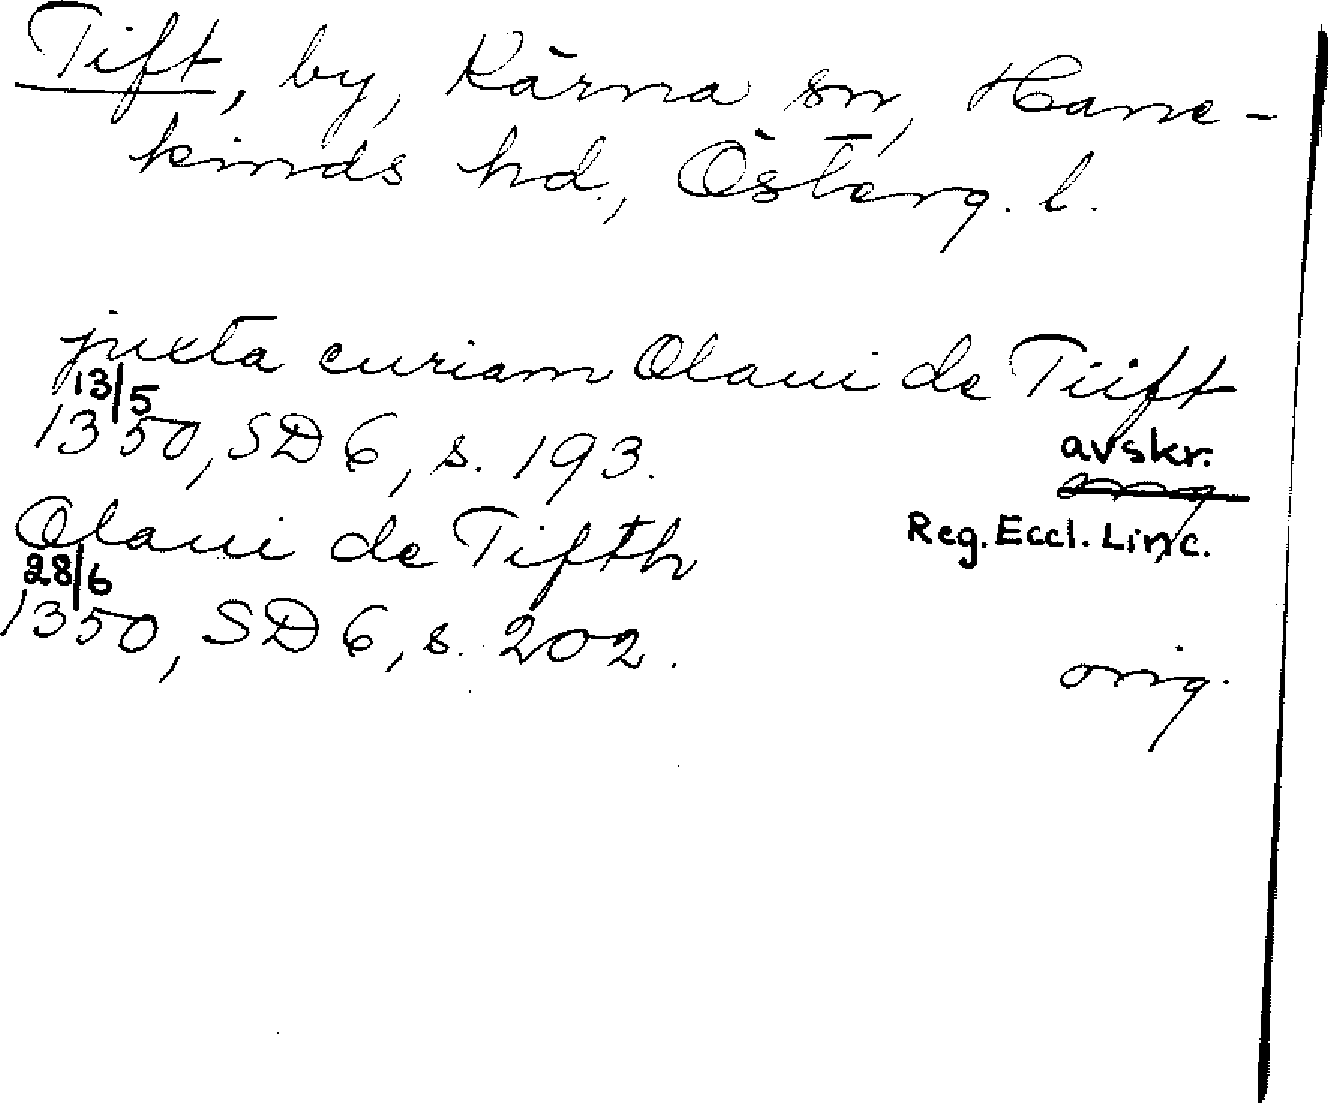 Tift, by, Kärna sn, Hane-
kinds hd., Österg. l.
juxta curiam Olaui de Tiift
13/5
1350, SD 6, s. 193. avskr.
orig.
Olaui de Tifth Reg. Eccl. Linc.
28/6
1350, SD 6, s. 202. orig.